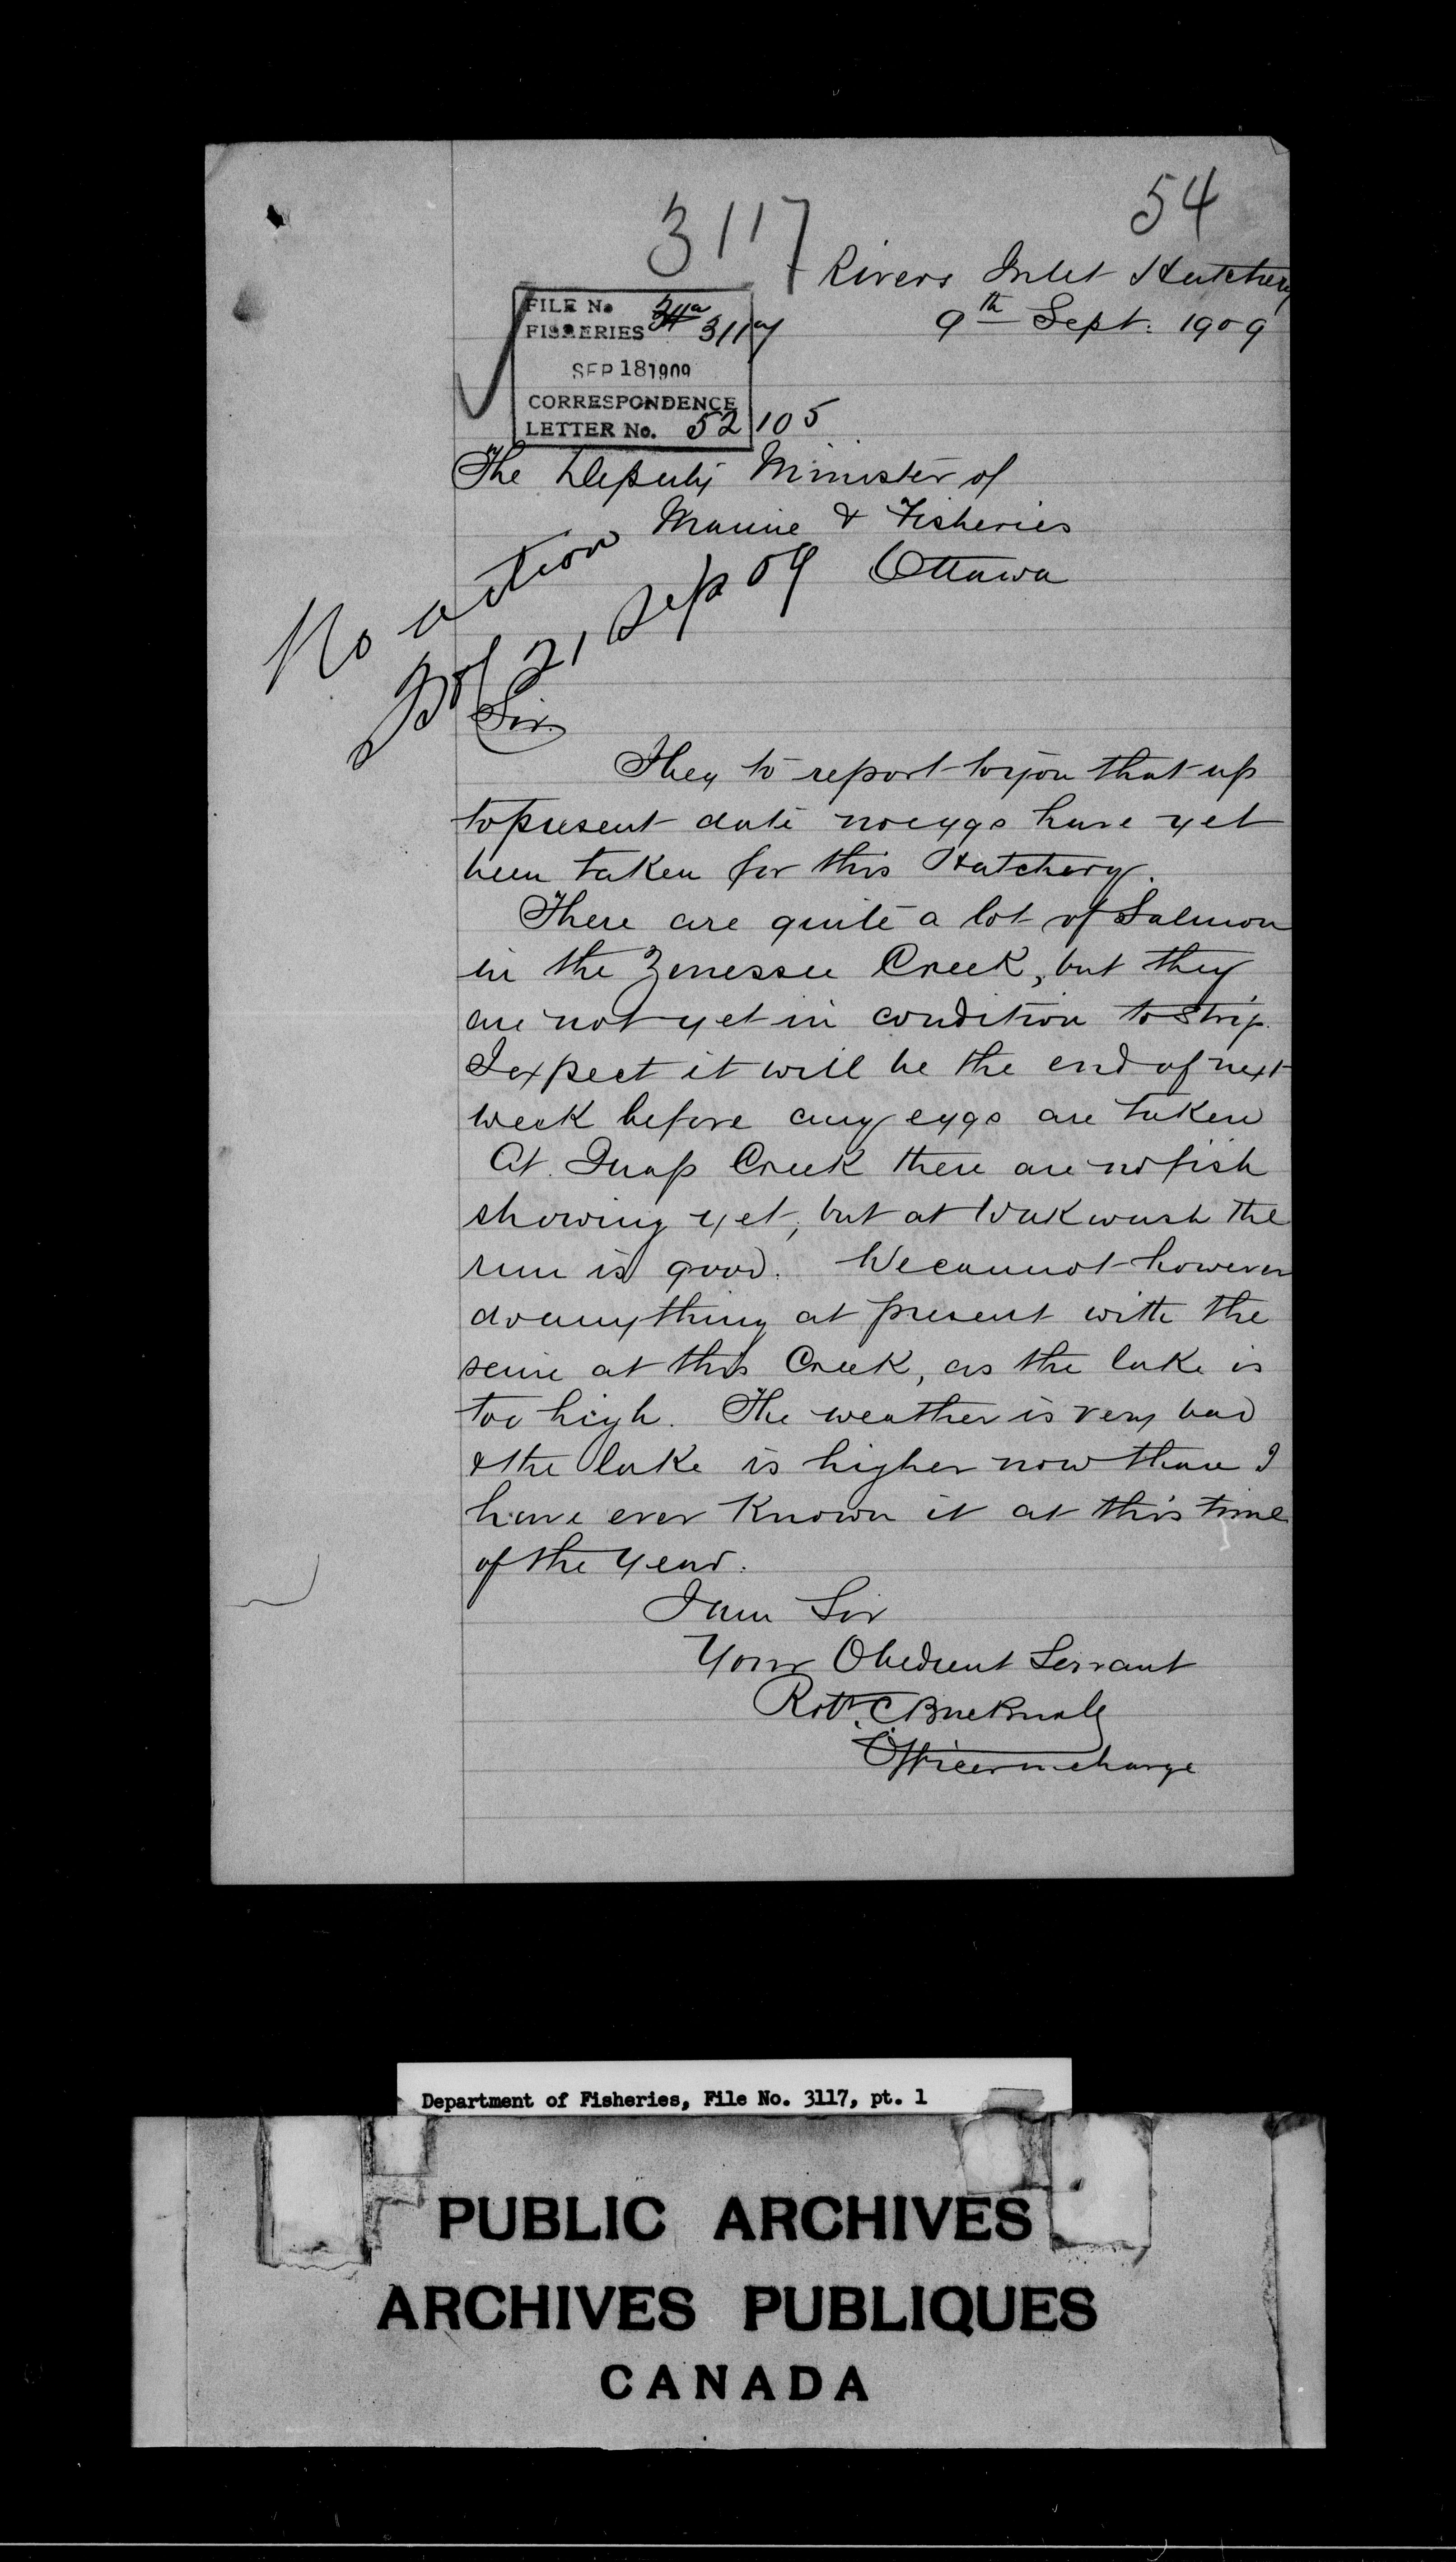 54
3117
Rivers Inlet Hatchery
9th Sept. 1909
FILE No
FISHERIES 3117
SEP 18 1909
CORRESPONDENCE
LETTER No. 52105
The Deputy Minister of
Marine & Fisheries
Ottawa
No action
21 Sep 09
Sir
I beg to report to you that up
to present date no eggs have yet
been taken for this Hatchery.
There are quite a lot of Salmon
in the Zenessee Creek, but they
are not yet in condition to strip.
I expect it will be the end of next
week before any eggs are taken
At Quap Creek there are no fish
showing yet, but at Wakwash the
run is good. We cannot however
do anything at present with the
seine at this Creek, as the lake is
too high. The weather is very bad
& the lake is higher now than I
have ever known it at this time
of the year.
I am Sir
Your Obedient Servant
Robt. C Bucknall
Officer in charge
Department of Fisheries, File No. 3117, pt. 1
PUBLIC ARCHIVES
ARCHIVES PUBLIQUES
CANADA